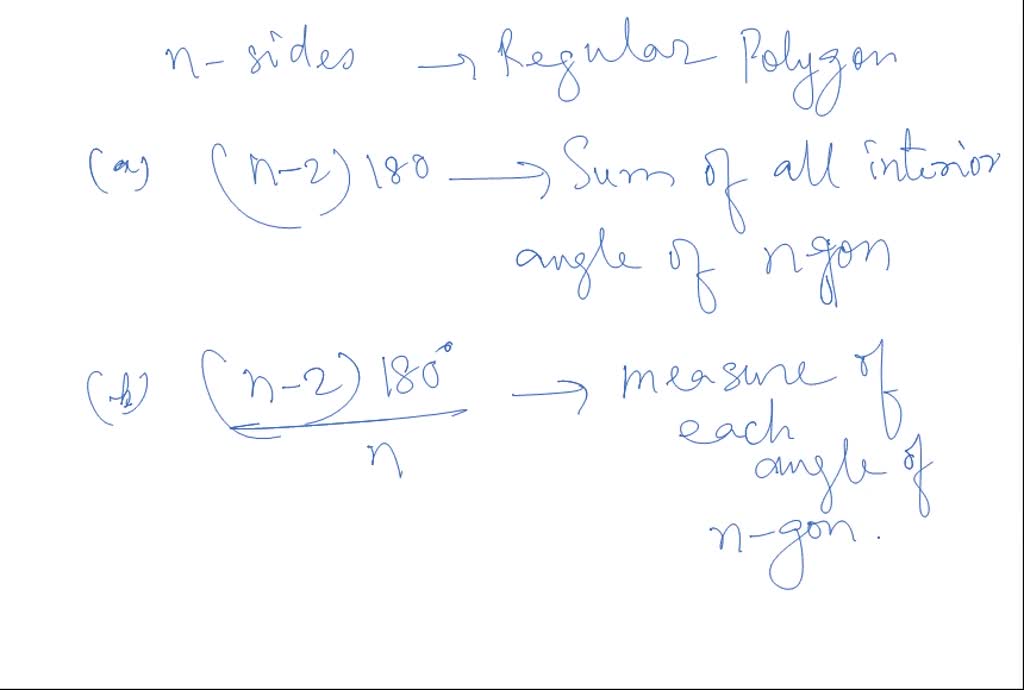 n-sides → Regular Polygon
(a) (n-2) 180 → Sum of all interior
angle of n-gon
(b) (n-2) 180° / n → measure of
each
angle of
n-gon.